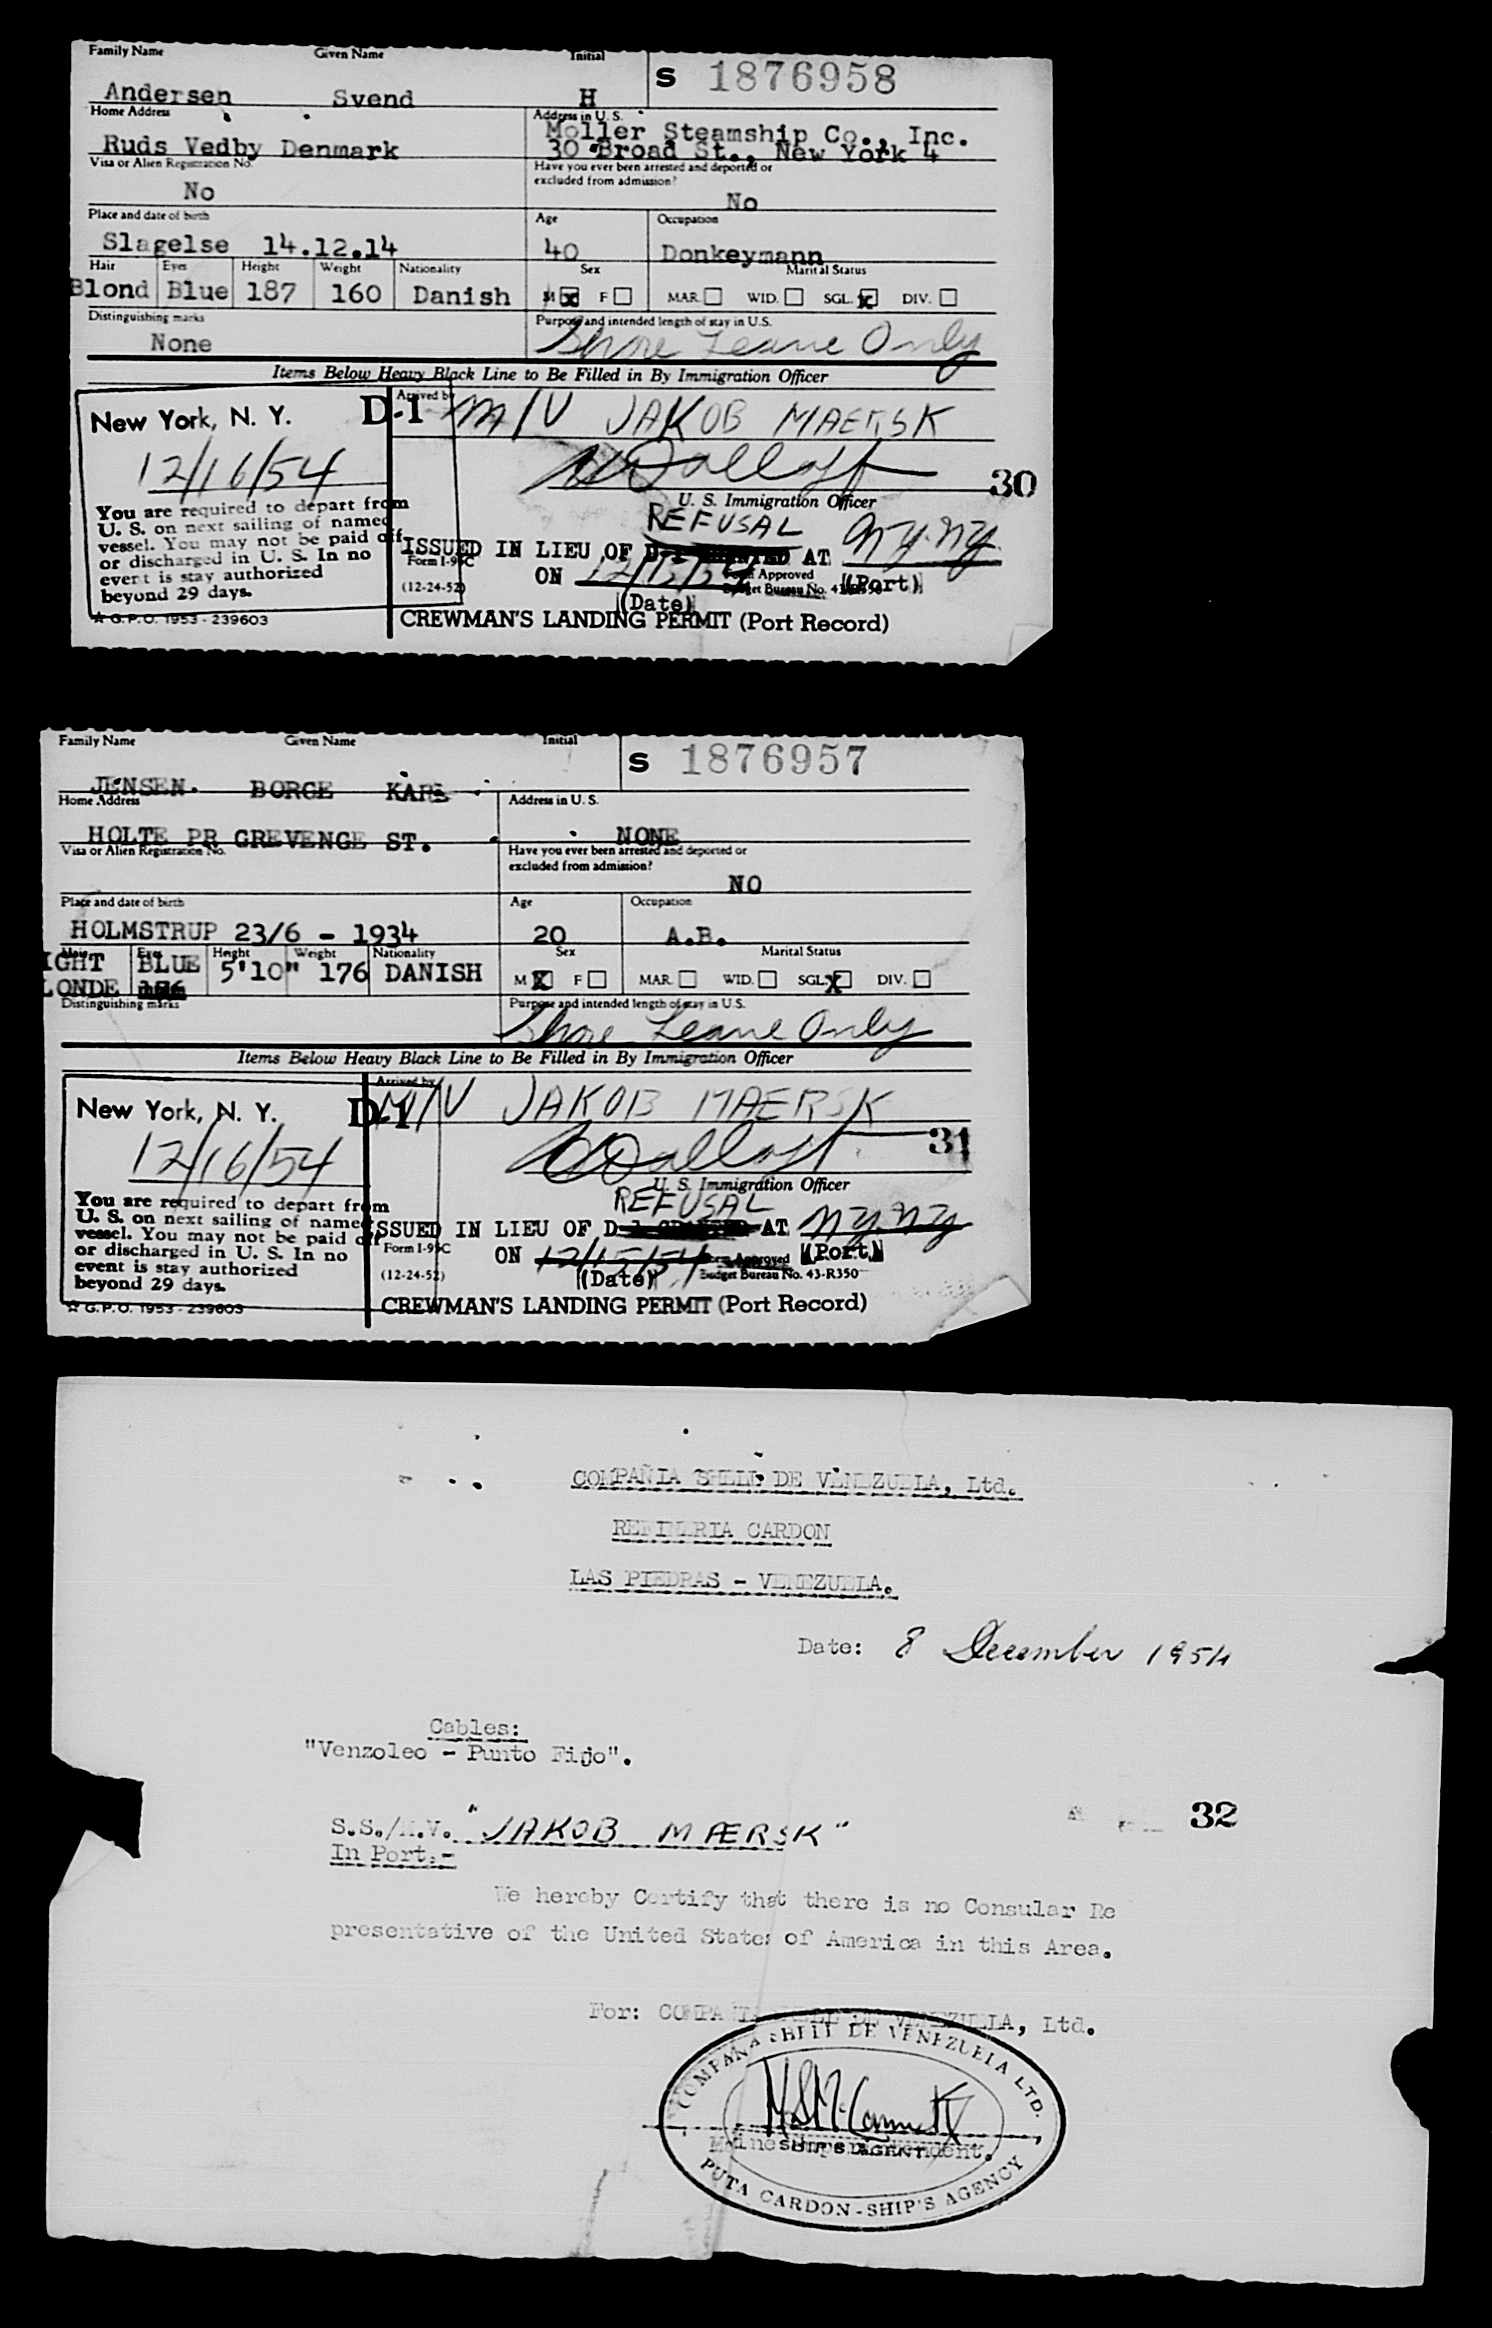 Family Name Given Name Initial
S 1876958
Andersen Svend H
Home Address Address in U. S.
Moller Steamship Co., Inc.
Ruds Vedby Denmark 30 Broad St., New York 4
Visa or Alien Registration No. Have you ever been arrested and deported or
excluded from admission?
No No
Place and date of birth Age Occupation
Slagelse 14.12.14 40 Donkeymann
Hair Eyes Height Weight Nationality Sex Marital Status
Blond Blue 187 160 Danish M X F MAR. WID. SGL. X DIV.
Distinguishing marks Purpose and intended length of stay in U.S.
None Shore Leave Only
Items Below Heavy Black Line to Be Filled in By Immigration Officer
New York, N. Y. D-1 Arrived by M/V JAKOB MAERSK
12/16/54
30
U. S. Immigration Officer
You are required to depart from
U. S. on next sailing of named
vessel. You may not be paid off
or discharged in U. S. In no
event is stay authorized
beyond 29 days.
REFUSAL
ISSUED IN LIEU OF D-1 GRANTED AT N.Y. N.Y.
Form I-95C Form Approved (Port)
ON 12/15/54
(12-24-52) Budget Bureau No. 43-R350
(Date)
☆ G.P.O. 1953 - 239603 CREWMAN'S LANDING PERMIT (Port Record)
Family Name Given Name Initial
S 1876957
JENSEN. BORGE KARL
Home Address Address in U. S.
HOLTE PR GREVENGE ST. NONE
Visa or Alien Registration No. Have you ever been arrested and deported or
excluded from admission?
NO
Place and date of birth Age Occupation
HOLMSTRUP 23/6 - 1934 20 A.B.
Hair Eyes Height Weight Nationality Sex Marital Status
IGHT BLUE 5'10" 176 DANISH M X F MAR. WID. SGL. X DIV.
LONDE
Distinguishing marks Purpose and intended length of stay in U.S.
Shore Leave Only
Items Below Heavy Black Line to Be Filled in By Immigration Officer
New York, N. Y. D-1 Arrived by M/V JAKOB MAERSK
12/16/54
31
U. S. Immigration Officer
You are required to depart from
U. S. on next sailing of named
vessel. You may not be paid off
or discharged in U. S. In no
event is stay authorized
beyond 29 days.
REFUSAL
ISSUED IN LIEU OF D-1 GRANTED AT N.Y. N.Y.
Form I-95C Form Approved (Port)
ON 12/15/54
(12-24-52) Budget Bureau No. 43-R350
(Date)
☆ G.P.O. 1953 - 239603 CREWMAN'S LANDING PERMIT (Port Record)
COMPAÑIA SHELL DE VENEZUELA, Ltd.
REFINERIA CARDON
LAS PIEDRAS - VENEZUELA.
Date: 8 December 1954
Cables:
"Venzoleo - Punto Fijo".
32
S.S./M.V. "JAKOB MÆRSK"
In Port.-
We hereby Certify that there is no Consular Re
presentative of the United States of America in this Area.
For: COMPAÑIA SHELL DE VENEZUELA, Ltd.
COMPAÑIA SHELL DE VENEZUELA LTD.
SHIP'S AGENT
PUTA CARDON - SHIP'S AGENCY